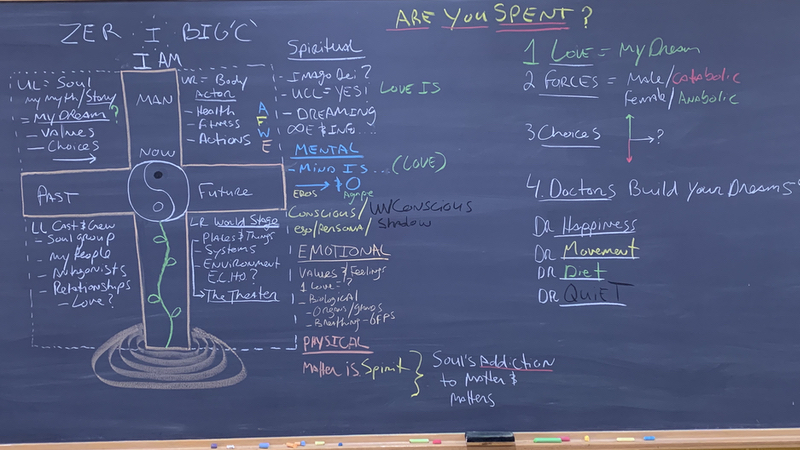 ZER · I BIG 'C'
I AM
UL = Soul
my myth/Story
- My Dream?
- Values
- Choices
MAN
UR = Body
Actor
- Health
- Fitness
- Actions
A
F
W
E
NOW
PAST
Future
LL Cast & Crew
- Soul group
- my People
- Antagonists
- Relationships
- Love?
LR World Stage
- Places & Things
- Systems
- Environment
E.L.H.O?
The Theater
Spiritual
- Imago Dei?
- UCL = YES!
- DREAMING
LOVE IS
MENTAL
- MIND IS... (LOVE)
EROS
Agape
CONSCIOUS/UN/CONSCIOUS
ego/persona/Shadow
EMOTIONAL
Values & Feelings
1 Love = ?
- Biological
- Organs/glands
- Breathing -
PHYSICAL
Matter is Spirit
Soul's Addiction
to Matter &
Matters
ARE YOU SPENT?
1 LOVE = My Dream
2 FORCES = Male/Catabolic
Female/Anabolic
3 Choices
?
4. Doctors Build Your Dreams
DR Happiness
DR Movement
DR Diet
DR QUIET